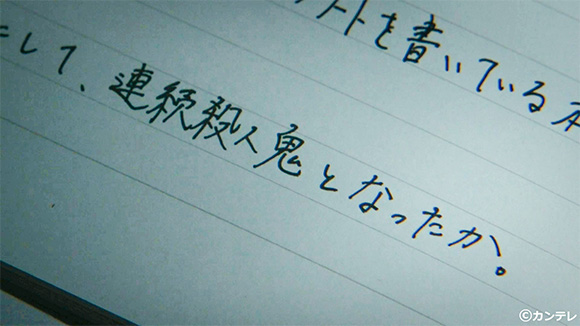 ノートを書いている
にして、連続殺人鬼となったか。
©カンテレ